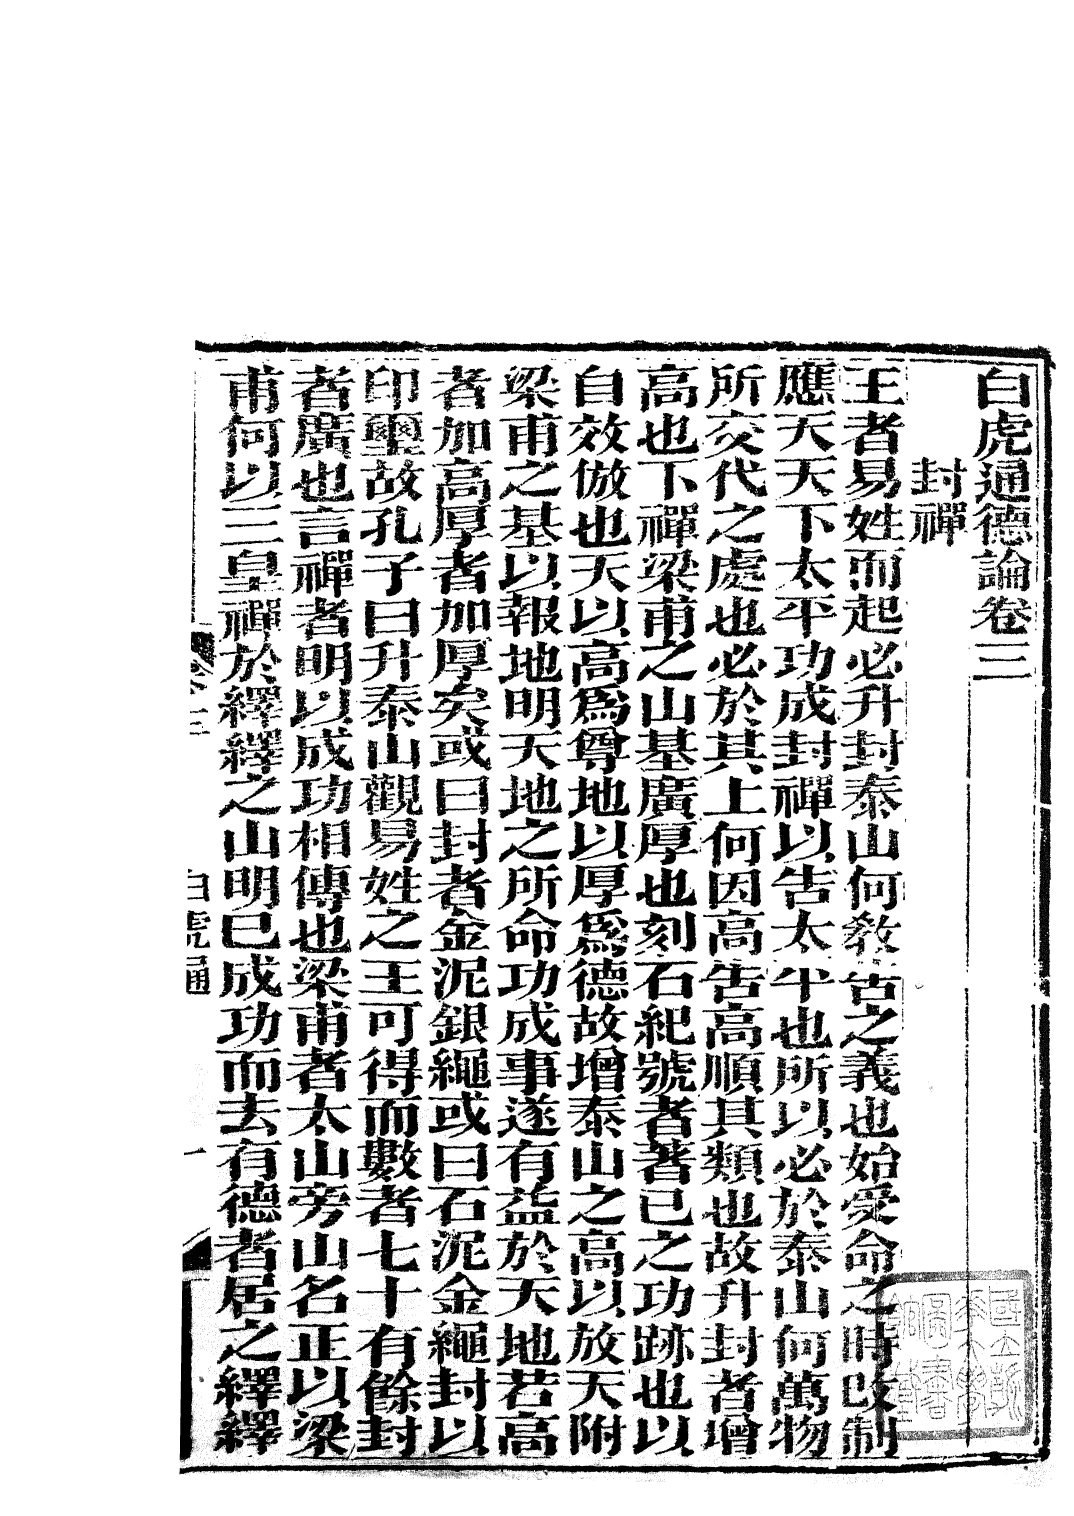 白虎通德論卷三
封禪
王者易姓而起必升封泰山何敎告之義也始受命之時改制
應天天下太平功成封禪以告太平也所以必於泰山何萬物
所交代之處也必於其上何因高告高順其類也故升封者增
高也下禪梁甫之山基廣厚也刻石紀號者著己之功跡也以
自效倣也天以高爲尊地以厚爲德故增泰山之高以放天附
梁甫之基以報地明天地之所命功成事遂有益於天地若高
者加高厚者加厚矣或曰封者金泥銀繩或曰石泥金繩封以
印璽故孔子曰升泰山觀易姓之王可得而數者七十有餘封
者廣也言禪者明以成功相傳也梁甫者太山旁山名正以梁
甫何以三皇禪於繹繹之山明已成功而去有德者居之繹繹
白虎通
一